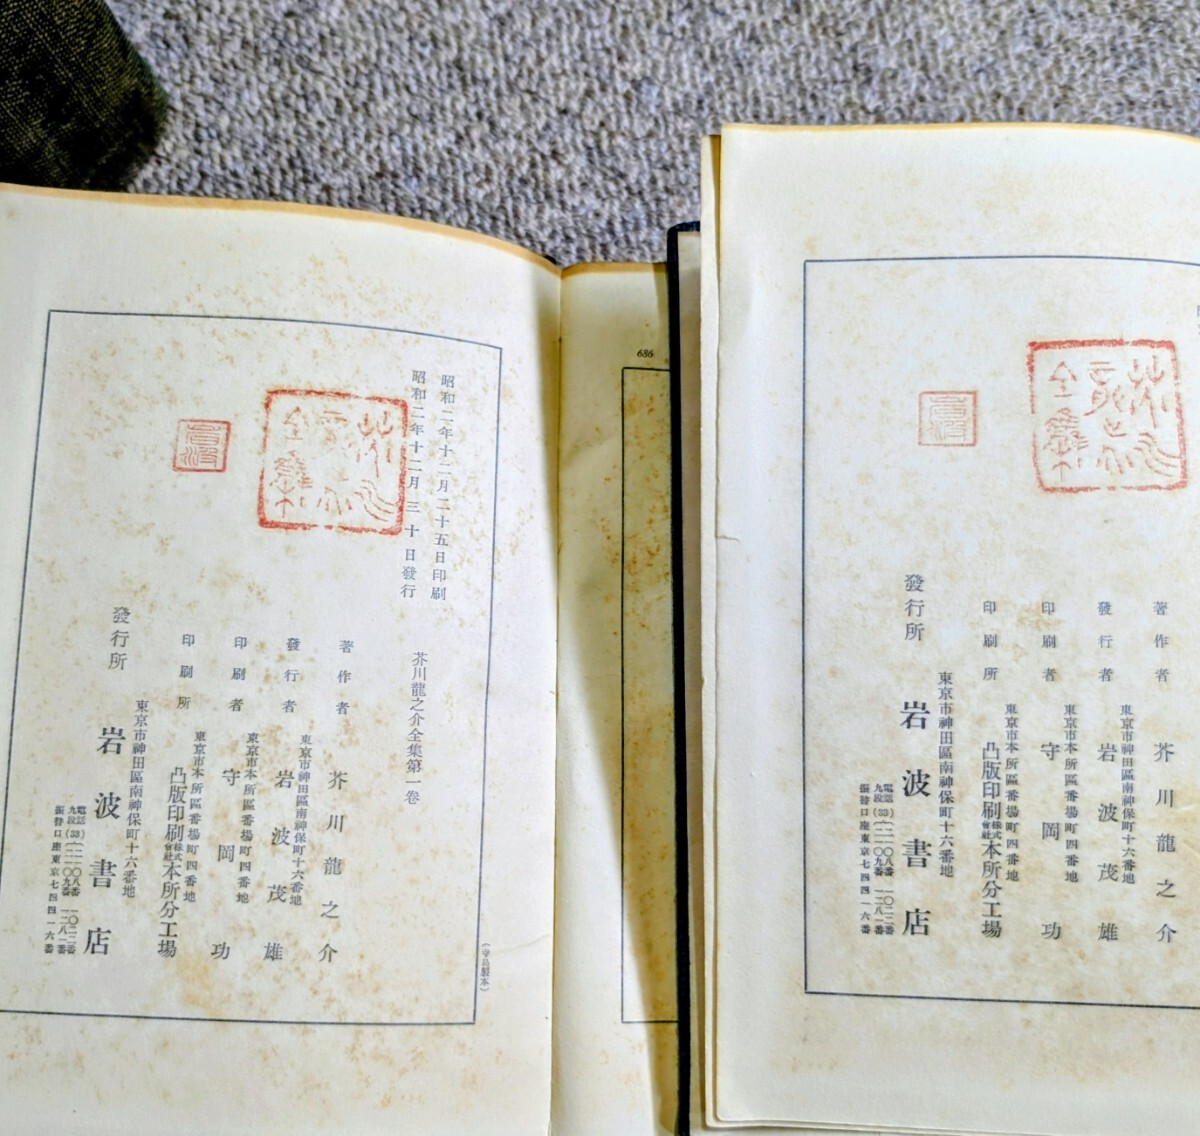 昭和二年十二月二十五日印刷
昭和二年十二月三十日發行
芥川龍之介全集第一卷
著作者 芥川龍之介
東京市神田區南神保町十六番地
發行者 岩波茂雄
東京市本所區番場町四番地
印刷者 守岡功
東京市本所區番場町四番地
印刷所 凸版印刷株式會社本所分工場
東京市神田區南神保町十六番地
發行所 岩波書店
振替口座東京七四四一六番
686
著作者 芥川龍之介
東京市神田區南神保町十六番地
發行者 岩波茂雄
東京市本所區番場町四番地
印刷者 守岡功
東京市本所區番場町四番地
印刷所 凸版印刷株式會社本所分工場
東京市神田區南神保町十六番地
發行所 岩波書店
振替口座東京七四四一六番